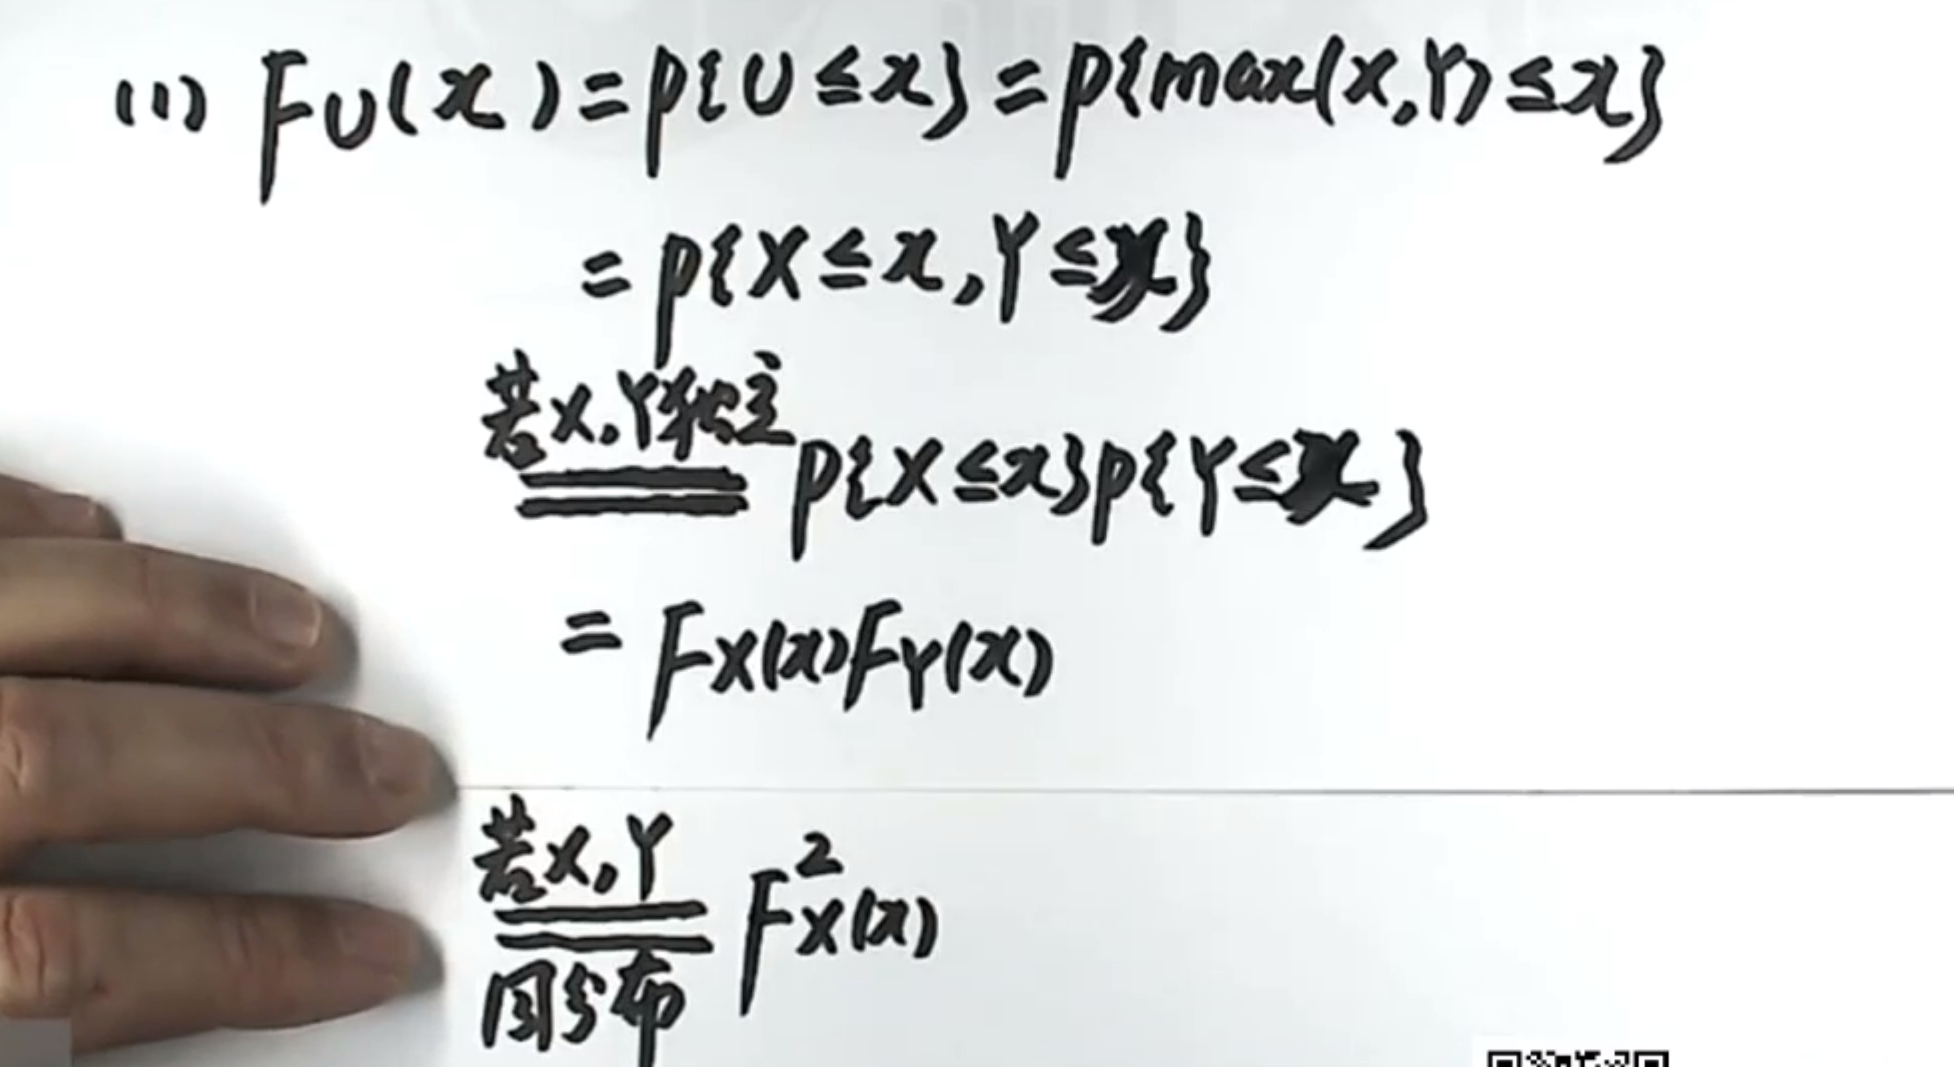 (1) FU(x)=P{U≤x}=P{max(X,Y)≤x}
=P{X≤x,Y≤x}
若X,Y独立
P{X≤x}P{Y≤x}
=FX(x)FY(x)
若X,Y
同分布
F²X(x)